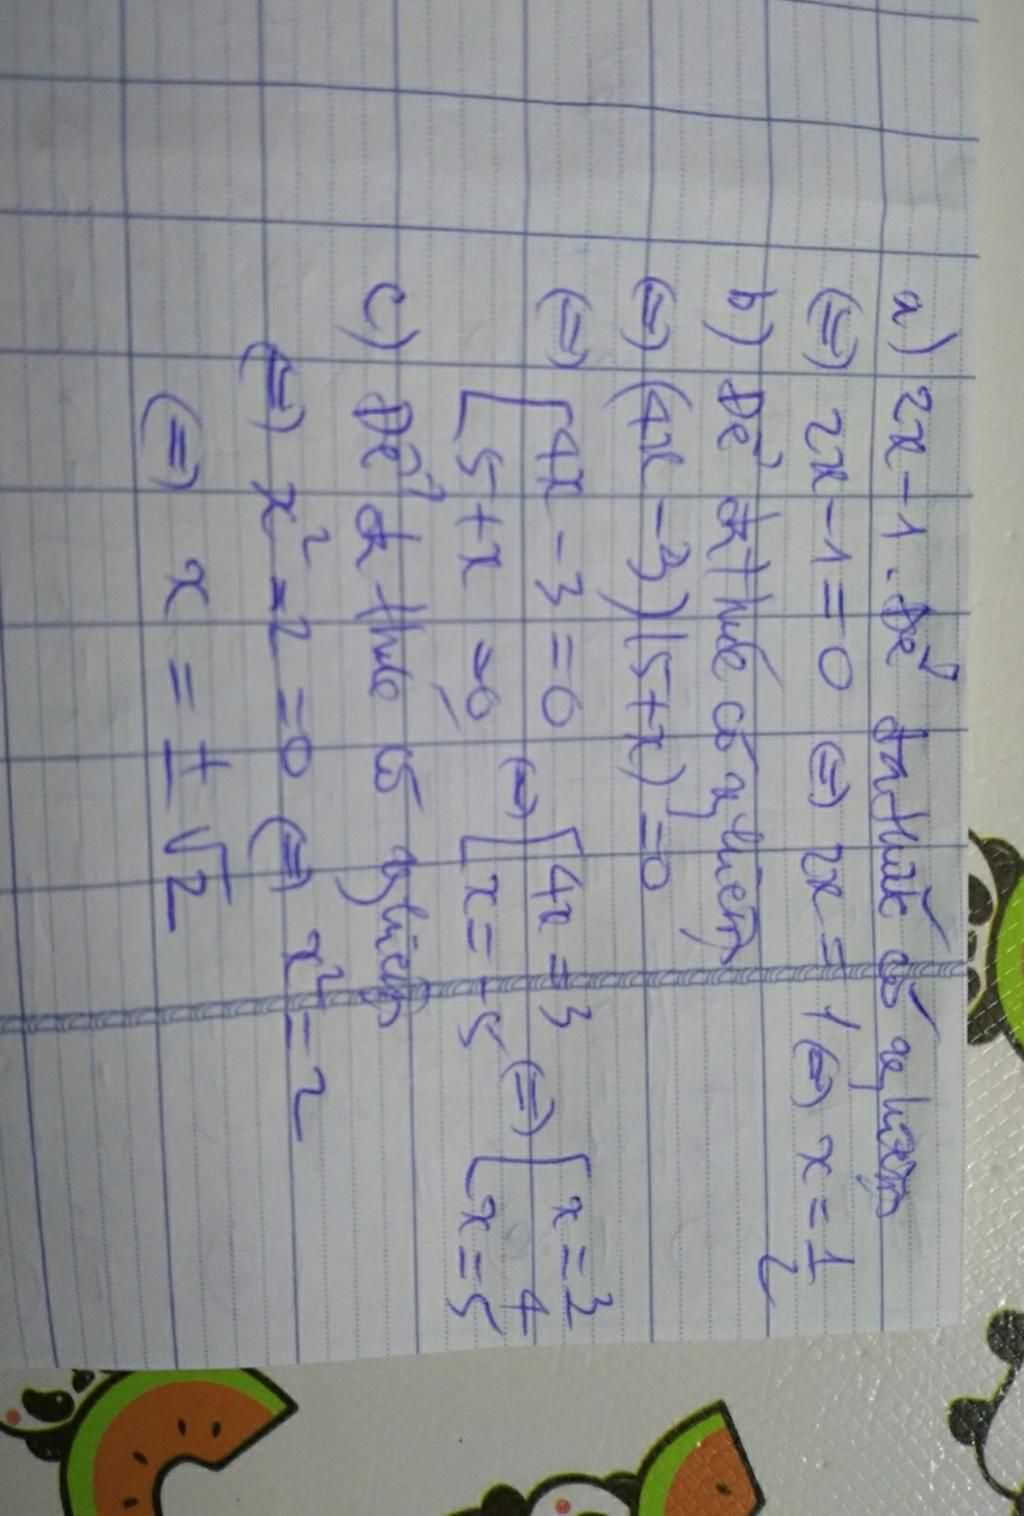 a) 2x - 1. Để đa thức có nghiệm
(=) 2x - 1 = 0 (=) 2x = 1 (=) x = 1/2
b) Để đa thức có nghiệm
(=) (4x - 3)(5 + x) = 0
(=) [4x - 3 = 0 (=) [4x = 3 (=) [x = 3/4
[5 + x = 0 [x = -5 [x = 5
c) Để đa thức có nghiệm
(=) x² - 2 = 0 (=) x² = 2
(=) x = ± √2